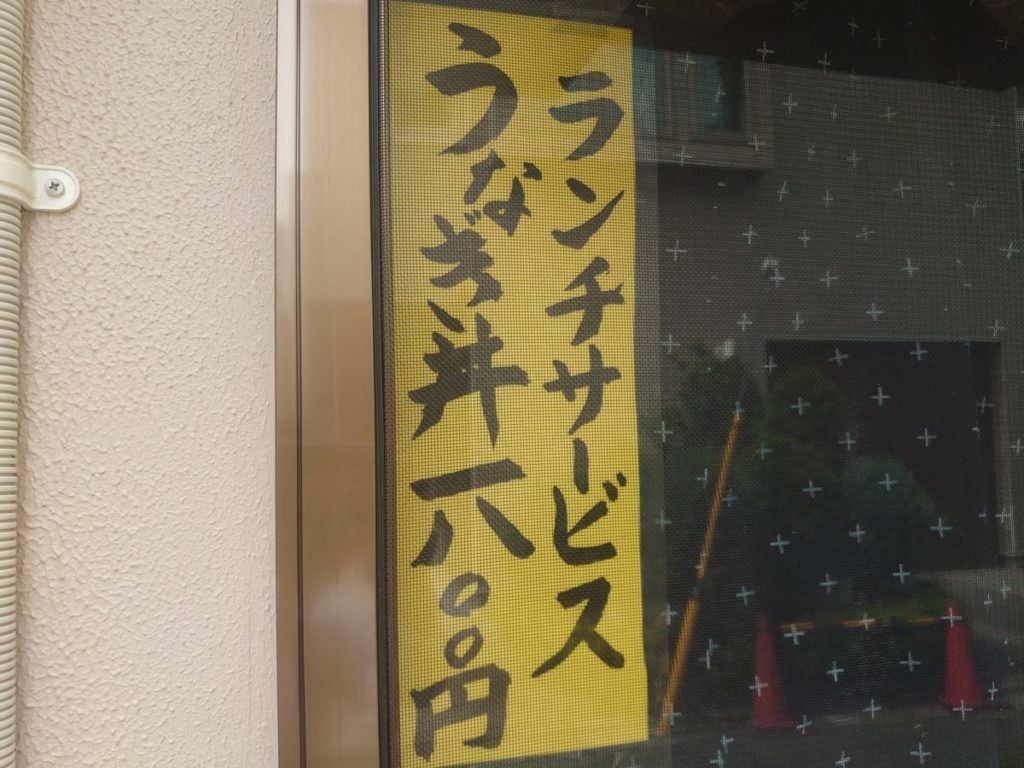 ランチサービス
うなぎ丼一八〇〇円